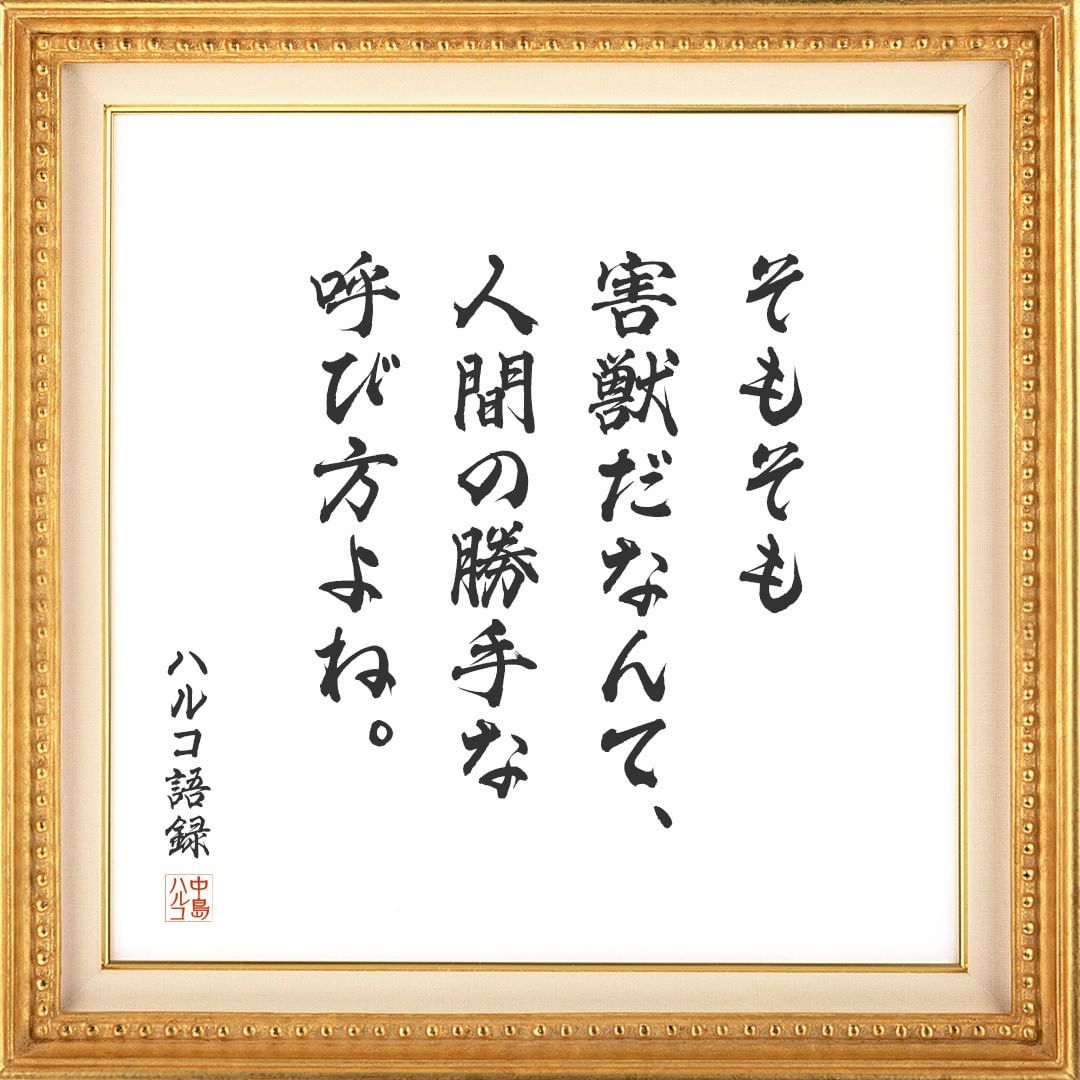 そもそも
害獣だなんて、
人間の勝手な
呼び方よね。
ハルコ語録
中島
ハルコ